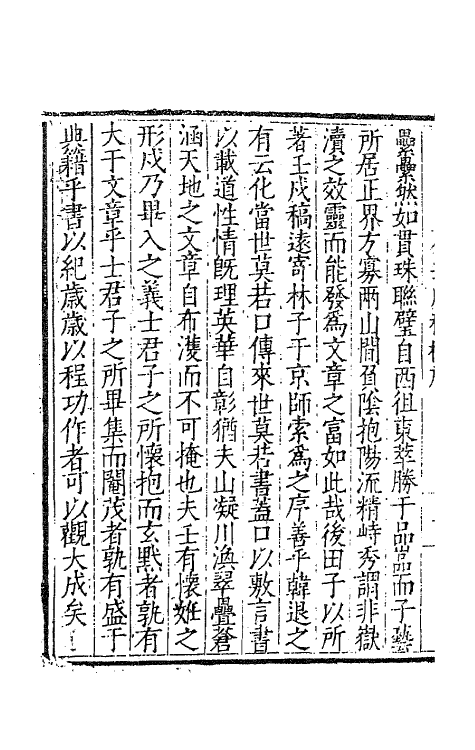 纍纍然如貫珠聯璧自西徂東萃勝于品嵓而子藝
所居正界方寡兩山間負陰抱陽流精峙秀謂非嶽
瀆之效靈而能發爲文章之富如此哉後田子以所
著壬戌稿遠寄林子于京師索爲之序善乎韓退之
有云化當世莫若口傳來世莫若書蓋口以敷言書
以載道性情旣理英華自彰猶夫山凝川渙翠疊蒼
涵天地之文章自布濩而不可掩也夫壬有懷妊之
形戌乃畢入之義士君子之所懷抱而玄黙者孰有
大于文章乎士君子之所畢集而閹茂者孰有盛于
典籍乎書以紀歲歲以程功作者可以觀大成矣